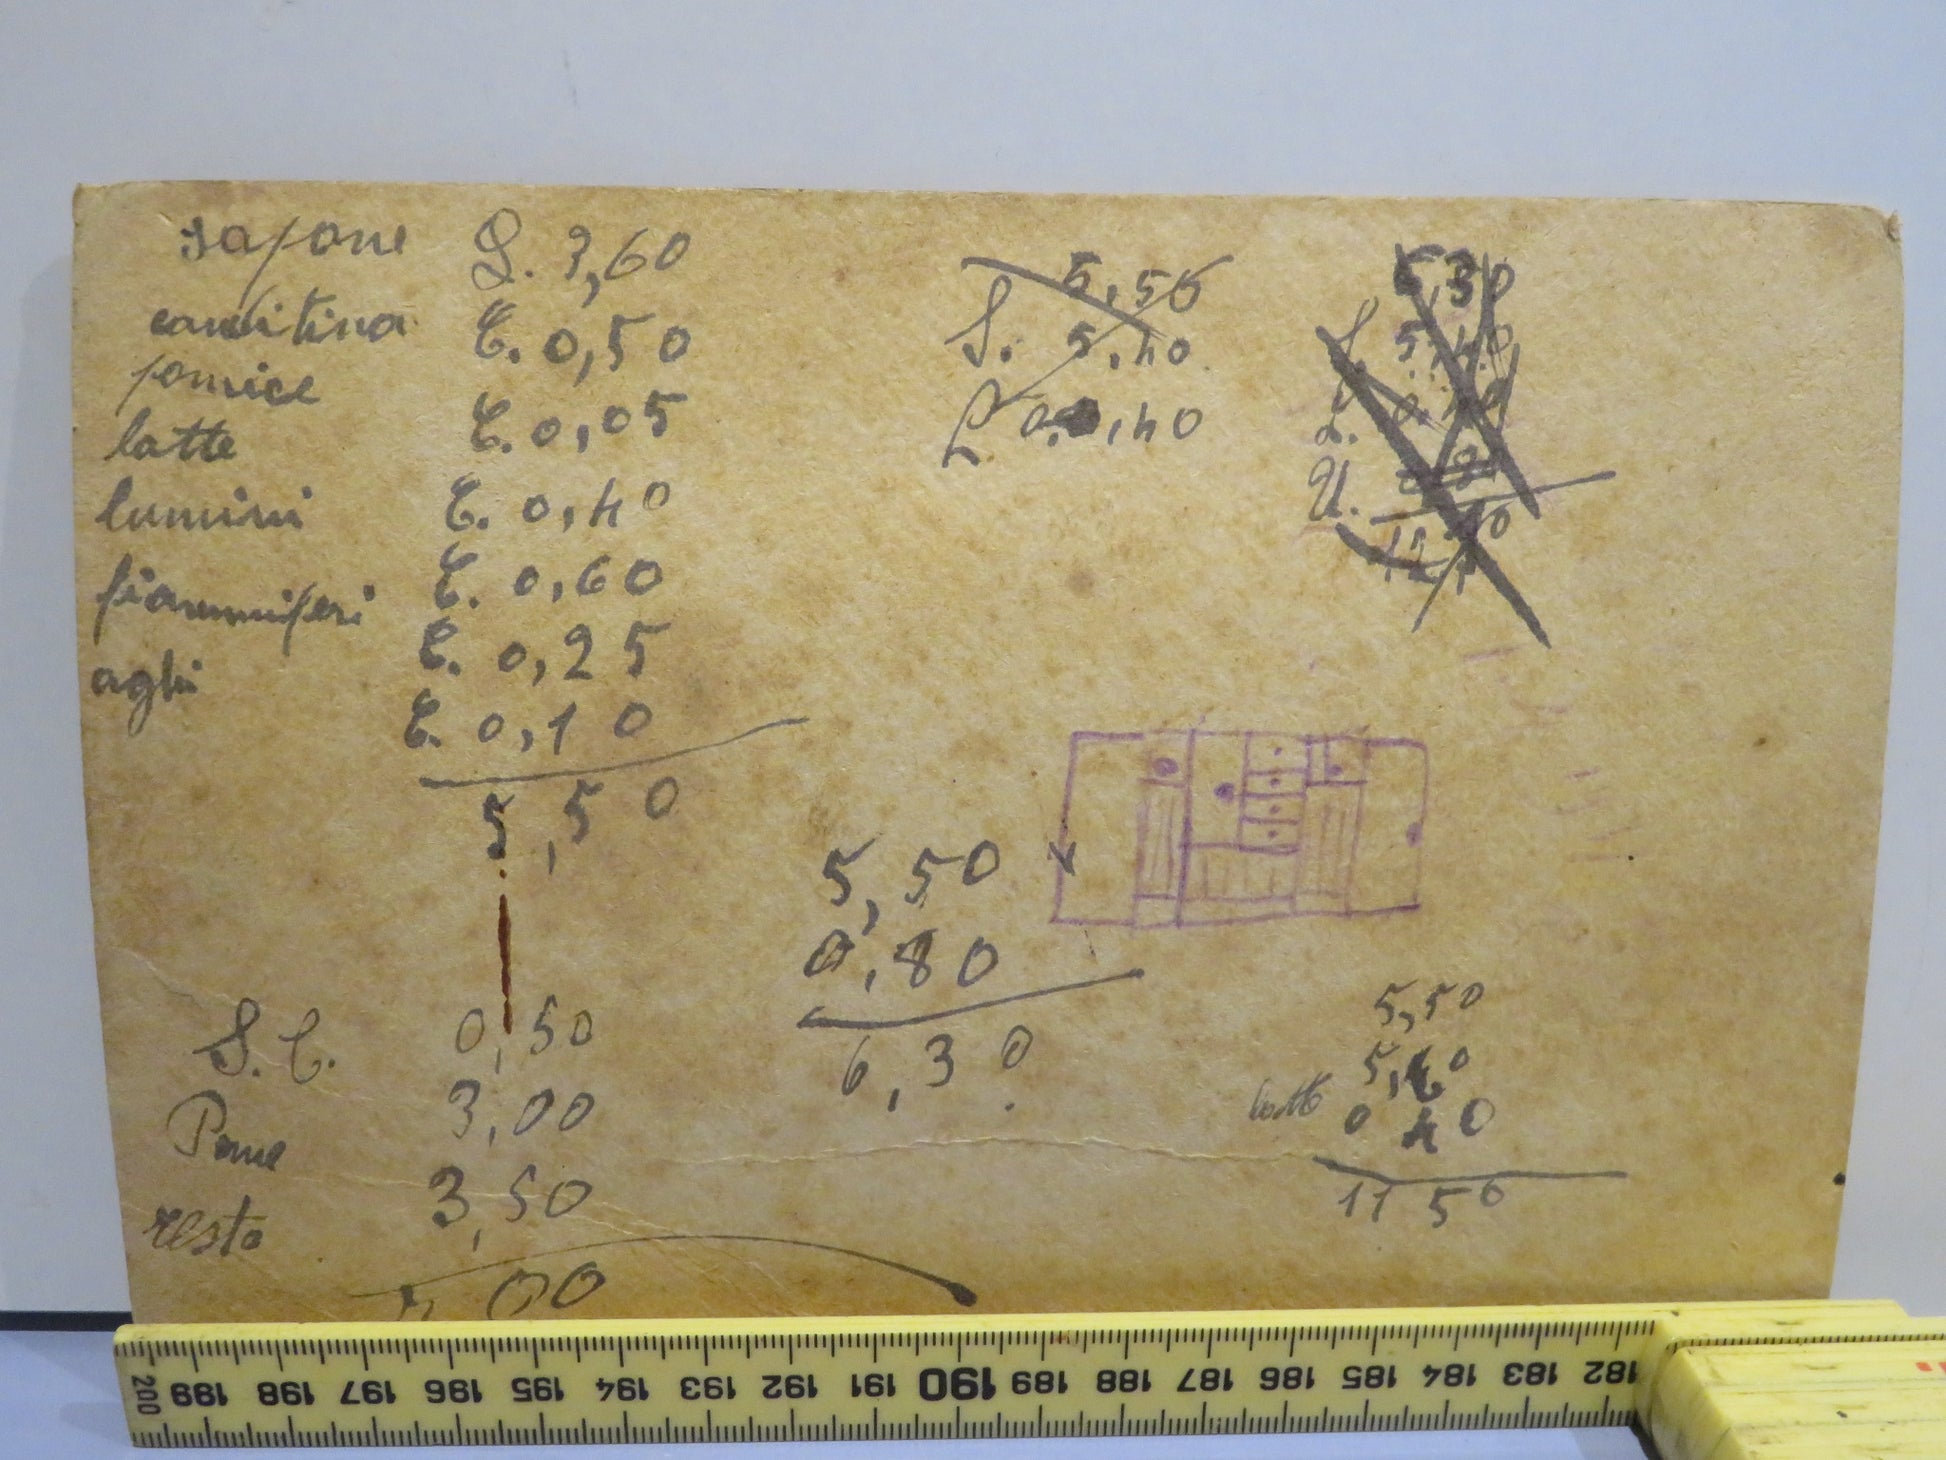 sapone L. 3,60
C. 0,50
pomice C. 0,05
latte C. 0,40
lumini C. 0,60
fiammiferi C. 0,25
agli C. 0,10
5,50
5,50
S. 5,40
L 0,40
5,30
S. 5,40
L.
U.
12
5,50
0,80
6,30
S. C. 0,50
Pane 3,00
resto 3,50
00
5,50
5,60
latte 0 40
11 50
200 199 198 197 196 195 194 193 192 191 190 189 188 187 186 185 184 183 182